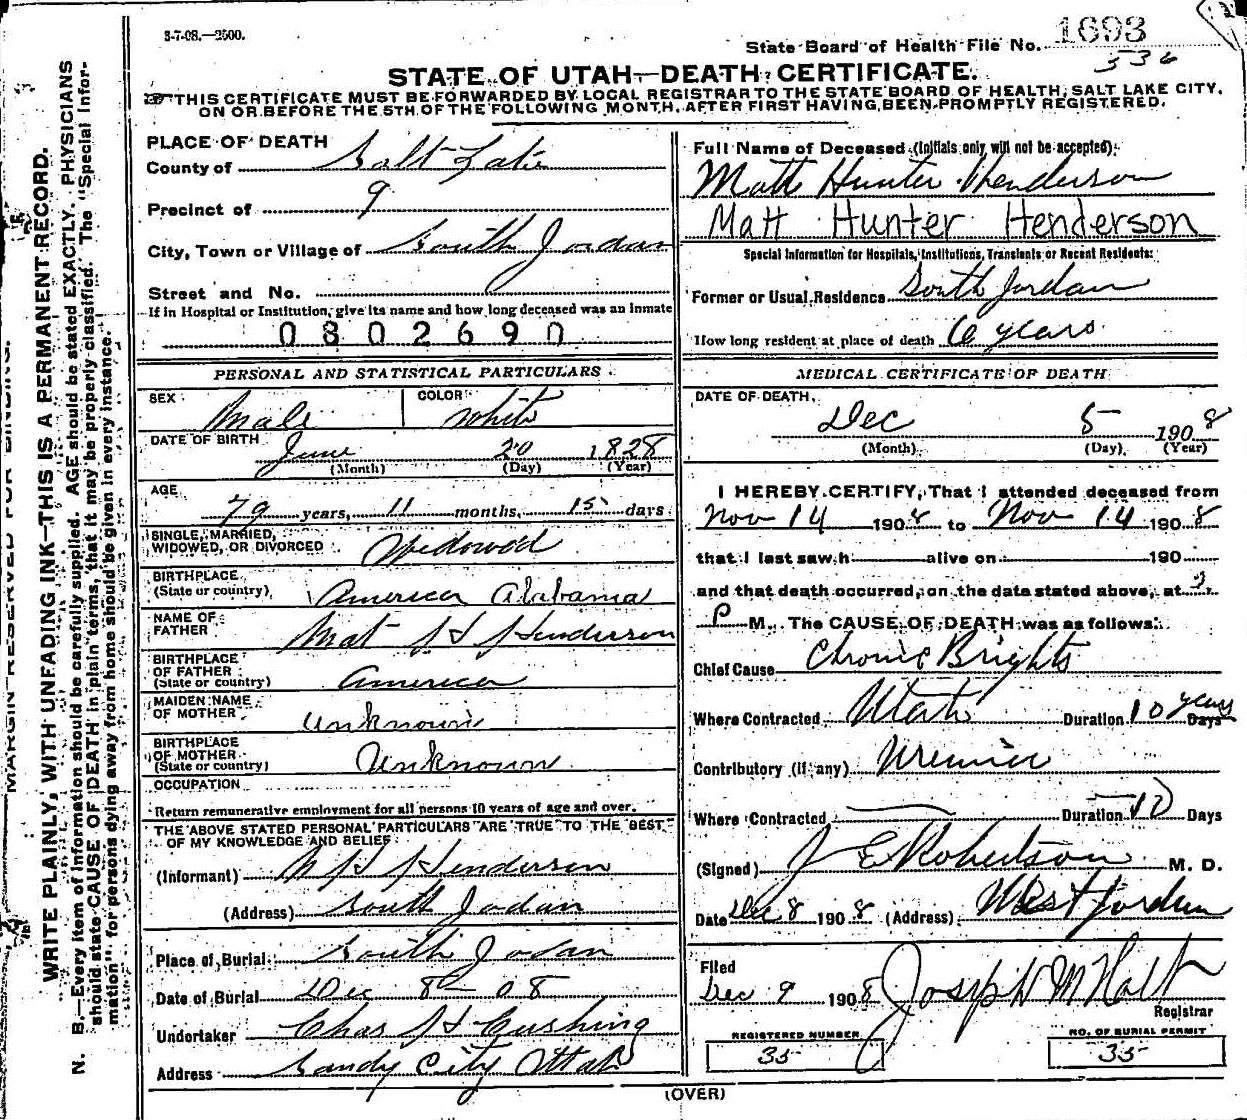 3-7-08.—2500.
State Board of Health File No. 1693
336
STATE OF UTAH—DEATH CERTIFICATE.
THIS CERTIFICATE MUST BE FORWARDED BY LOCAL REGISTRAR TO THE STATE BOARD OF HEALTH, SALT LAKE CITY,
ON OR BEFORE THE 5TH OF THE FOLLOWING MONTH, AFTER FIRST HAVING BEEN PROMPTLY REGISTERED.
MARGIN RESERVED FOR BINDING.
WRITE PLAINLY, WITH UNFADING INK—THIS IS A PERMANENT RECORD.
N. B.—Every item of information should be carefully supplied. AGE should be stated EXACTLY. PHYSICIANS
should state CAUSE OF DEATH in plain terms, that it may be properly classified. The "Special Infor-
mation" for persons dying away from home should be given in every instance.
PLACE OF DEATH
County of Salt Lake
Precinct of 9
City, Town or Village of South Jordan
Street and No.
If in Hospital or Institution, give its name and how long deceased was an inmate
0802690
PERSONAL AND STATISTICAL PARTICULARS
SEX Male COLOR White
DATE OF BIRTH June 20 1828
(Month) (Day) (Year)
AGE 79 years, 11 months, 15 days
SINGLE, MARRIED,
WIDOWED, OR DIVORCED Widowed
BIRTHPLACE
(State or country) America Alabama
NAME OF
FATHER Mat H Henderson
BIRTHPLACE
OF FATHER
(State or country) America
MAIDEN NAME
OF MOTHER Unknown
BIRTHPLACE
OF MOTHER
(State or country) Unknown
OCCUPATION
Return remunerative employment for all persons 10 years of age and over.
THE ABOVE STATED PERSONAL PARTICULARS ARE TRUE TO THE BEST
OF MY KNOWLEDGE AND BELIEF
(Informant) M H Henderson
(Address) South Jodan
Place of Burial South Jodan
Date of Burial Dec 8 - 08
Undertaker Chas H Cushing
Address Sandy City Utah
Full Name of Deceased (Initials only will not be accepted):
Matt Hunter Henderson
Matt Hunter Henderson
Special Information for Hospitals, Institutions, Transients or Recent Residents:
Former or Usual Residence South Jordan
How long resident at place of death 6 years
MEDICAL CERTIFICATE OF DEATH
DATE OF DEATH,
Dec 5 1908
(Month) (Day) (Year)
I HEREBY CERTIFY, That I attended deceased from
Nov 14 1908 to Nov 14 1908
that I last saw h alive on 190
and that death occurred, on the data stated above, at 2
P M. The CAUSE OF DEATH was as follows:
Chief Cause Chronic Brights
Where Contracted Utah Duration 10 years Days
Contributory (if any) Uremia
Where Contracted Duration 10 Days
(Signed) J E Robertson M. D.
Date Dec 8 1908 (Address) West Jordan
Filed
Dec 9 1908 Joseph M Holt
Registrar
REGISTERED NUMBER
35
NO. OF BURIAL PERMIT
35
(OVER)